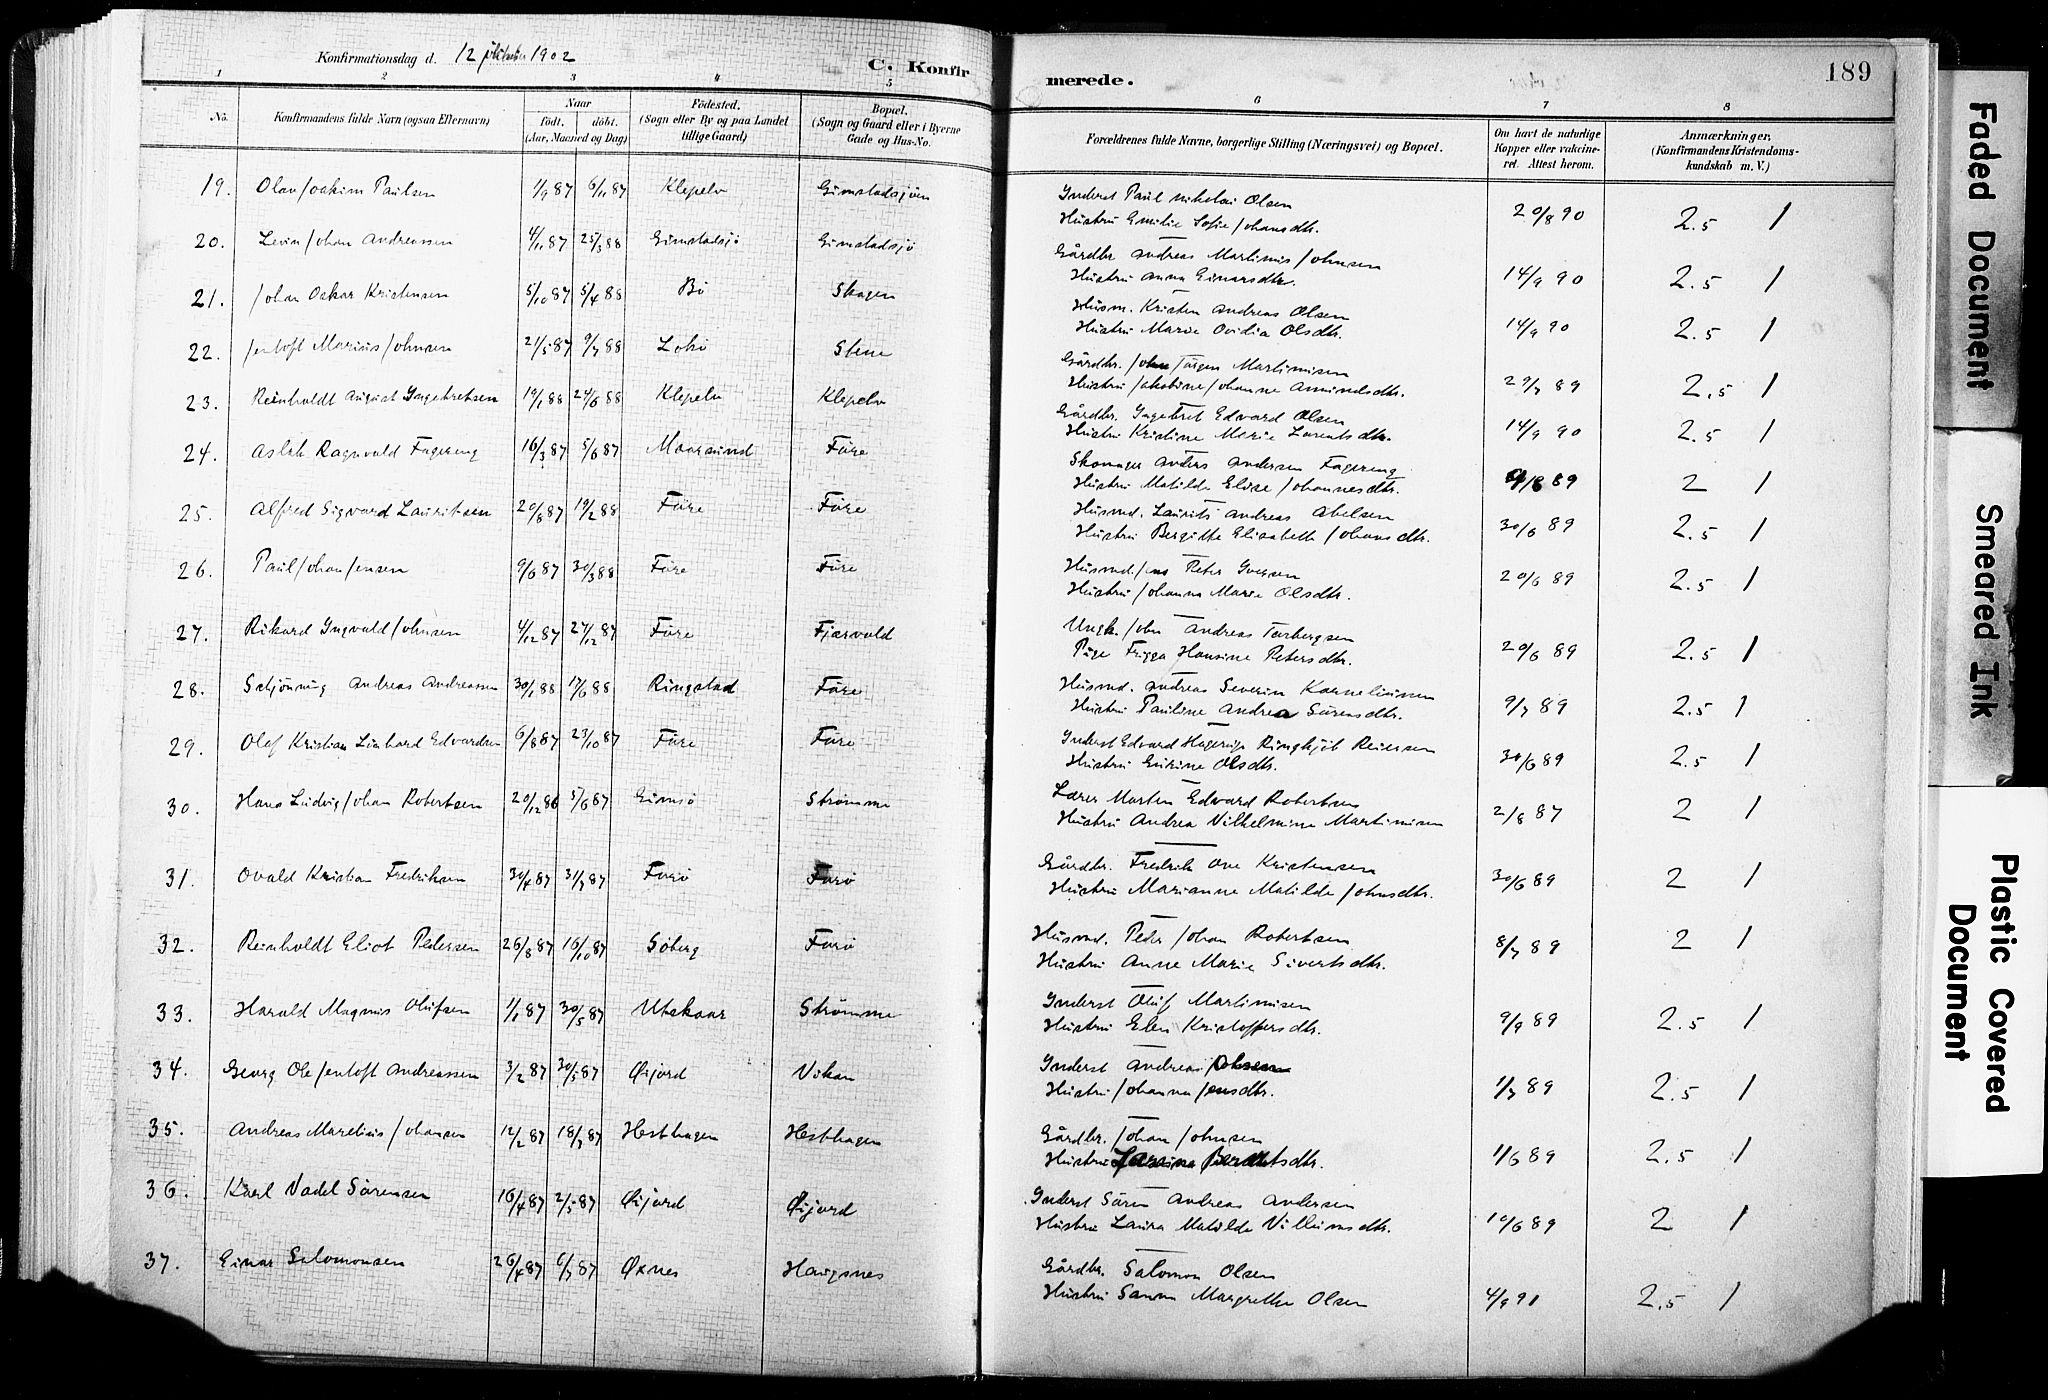 Konfirmationsdag d. 12 oktober 1902
C. Konfirmerede.
189
1 2 3 4 5 6 7 8
No.
Konfirmandens fulde Navn (ogsaa Efternavn)
Naar
födt. döbt.
(Aar, Maaned og Dag)
Födested.
(Sogn eller By og paa Landet tillige Gaard)
Bopæl.
(Sogn og Gaard eller i Byerne Gade og Hus-No.
Forældrenes fulde Navne, borgerlige Stilling (Næringsvei) og Bopæl.
Om havt de naturlige Kopper eller vakcineret. Attest herom.
Anmærkninger.
(Konfirmandens Kristendomskundskab m. V.)
19. Olav Joakim Paulsen 1/9 87 6/11 87 Klepelv Gimstadsjöen Inderst Paul Nikolai Olsen 20/8 90 2.5 1
Hustru Emilie Sofie Johansdtr.
20. Levin Johan Andreassen 4/11 87 25/3 88 Gimstadsjö Gimstadsjö Gårdbr. Andreas Martinus Johnsen 14/9 90 2.5 1
Hustru Anna Einarsdtr.
21. Johan Oskar Kristensen 5/10 87 5/4 88 Bö Skagen Husm. Kristen Andreas Olsen 14/9 90 2.5 1
Hustru Marie Ovidia Olsdtr.
22. Jentoft Marius Johnsen 21/5 87 9/7 88 Stene Gårdbr. John Jörgen Martinusen 29/7 89 2.5 1
Hustru Jakobine Johanne Amundsdtr.
23. Reinholdt August Ingebretsen 19/1 88 24/6 88 Klepelv Klepelv Gårdbr. Ingebret Edvard Olsen 14/9 90 2.5 1
Hustru Kristine Marie Larentsdtr.
24. Aslak Ragnvald Fagereng 16/3 87 5/6 87 Maarsund Före Skomager Anders Andersen Fagereng 9/8 89 2 1
Hustru Matilde Elise Johannesdtr.
25. Alfred Sigvard Lauritsen 20/8 87 19/2 88 Före Före Husmd. Laurits Andreas Abelsen 30/6 89 2.5 1
Hustru Bergitte Elisabeth Johansdtr.
26. Paul Johan Jensen 9/6 87 30/3 88 Före Före Husmd. Jens Peter Iversen 20/6 89 2.5 1
Hustru Johanna Marie Olsdtr.
27. Rikard Ingvald Johnsen 4/12 87 27/12 87 Före Fjærvold Ungk. John Andreas Torbergsen 20/6 89 2.5 1
Pige Frigga Hansine Petersdtr.
28. Schjönning Andreas Andreassen 30/1 88 17/6 88 Ringstad Före Husmd. Andreas Severin Korneliussen 9/7 89 2.5 1
Hustru Pauline Andrea Sörensdtr.
29. Olaf Kristian Linhard Edvardsen 6/8 87 23/10 87 Före Före Inderst Edvard Hagerup Ringkjöb Reiersen 30/6 89 2.5 1
Hustru Olsdtr.
30. Hans Ludvig Johan Robertsen 20/12 86 5/6 87 Gimsö Strömme Lærer Morten Edvard Robertsen 2/8 87 2 1
Hustru Andrea Vilhelmine Martinusen
31. Ovald Kristian Fredriksen 30/4 87 31/7 87 Forö Forö Gårdbr. Fredrik Ove Kristensen 30/6 89 2 1
Hustru Marianne Matilde Johnsdtr.
32. Reinholdt Eliot Pedersen 26/8 87 16/10 87 Söberg Forö Husmd. Peder Johan Robertsen 8/7 89 2 1
Hustru Anne Marie Sivertsdtr.
33. Harald Magnus Olufsen 1/1 87 30/5 87 Utskaar Strömme Inderst Oluf Martinusen 9/9 89 2.5 1
Hustru Elen Kristoffersdtr.
34. Georg Ole Jentoft Andreassen 3/2 87 30/5 87 Øijord Vikan Inderst Andreas Johnsen 1/7 89 2.5 1
Hustru Johanna Jensdtr.
35. Andreas Marelius Johansen 12/2 87 18/7 87 Hesthagen Hesthagen Gårdbr. Johan Johnsen 1/6 89 2.5 1
Hustru Berntsdtr.
36. Karl Vadel Sörensen 16/4 87 2/5 87 Øijord Øijord Inderst Sören Andreas Andersen 10/6 89 2 1
Hustru Laura Matilde Villumsdtr.
37. Einar Salomonsen 26/4 87 6/7 87 Øxnes Haugsnes Gårdbr. Salomon Olsen 4/9 91 2.5 1
Hustru Sanna Margrethe Olsen
Faded Document
Smeared Ink
Plastic Covered Document